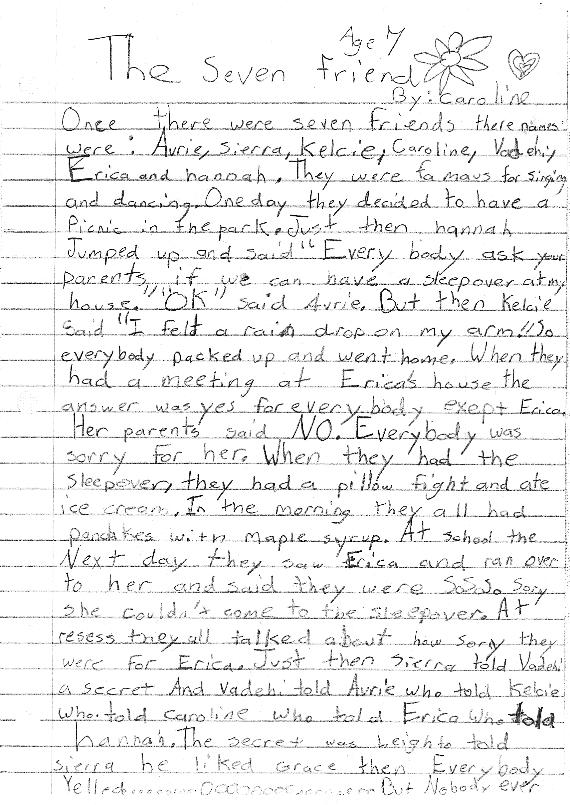 Age 7
The Seven friend
By: Caroline
Once there were seven friends there names
were: Avrie, Sierra, Kelcie, Caroline, Vadehi,
Erica and hannah. They were famous for singing
and dancing. One day they decided to have a
Picnic in the park. Just then hannah
Jumped up and said "Every body ask your
parents if we can have a sleepover at my
house." "OK" said Avrie. But then Kelcie
said "I felt a rain drop on my arm!! So
everybody packed up and went home. When they
had a meeting at Erica's house the
answer was yes for every body exept Erica.
Her parents said NO. Everybody was
sorry for her. When they had the
Sleepover, they had a pillow fight and ate
ice cream. In the morning they all had
pancakes with maple syrup. At school the
Next day they saw Erica and ran over
to her and said they were SoSoSo Sory
she couldn't come to the sleepover. At
resess they all talked about how sorry they
were for Erica. Just then Sierra told Vadehi
a secret And Vadehi told Avrie who told Kelcie
who told caroline who told Erica who told
hannah. The secret was Leigh to told
sierra he liked Grace then Everybody
Yelled But Nobody ever